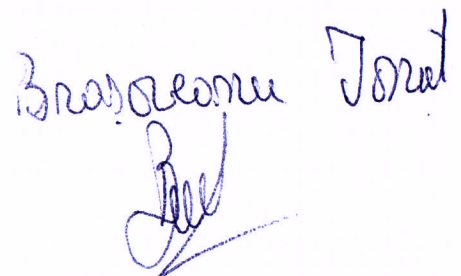 Brașoveanu Ionuț